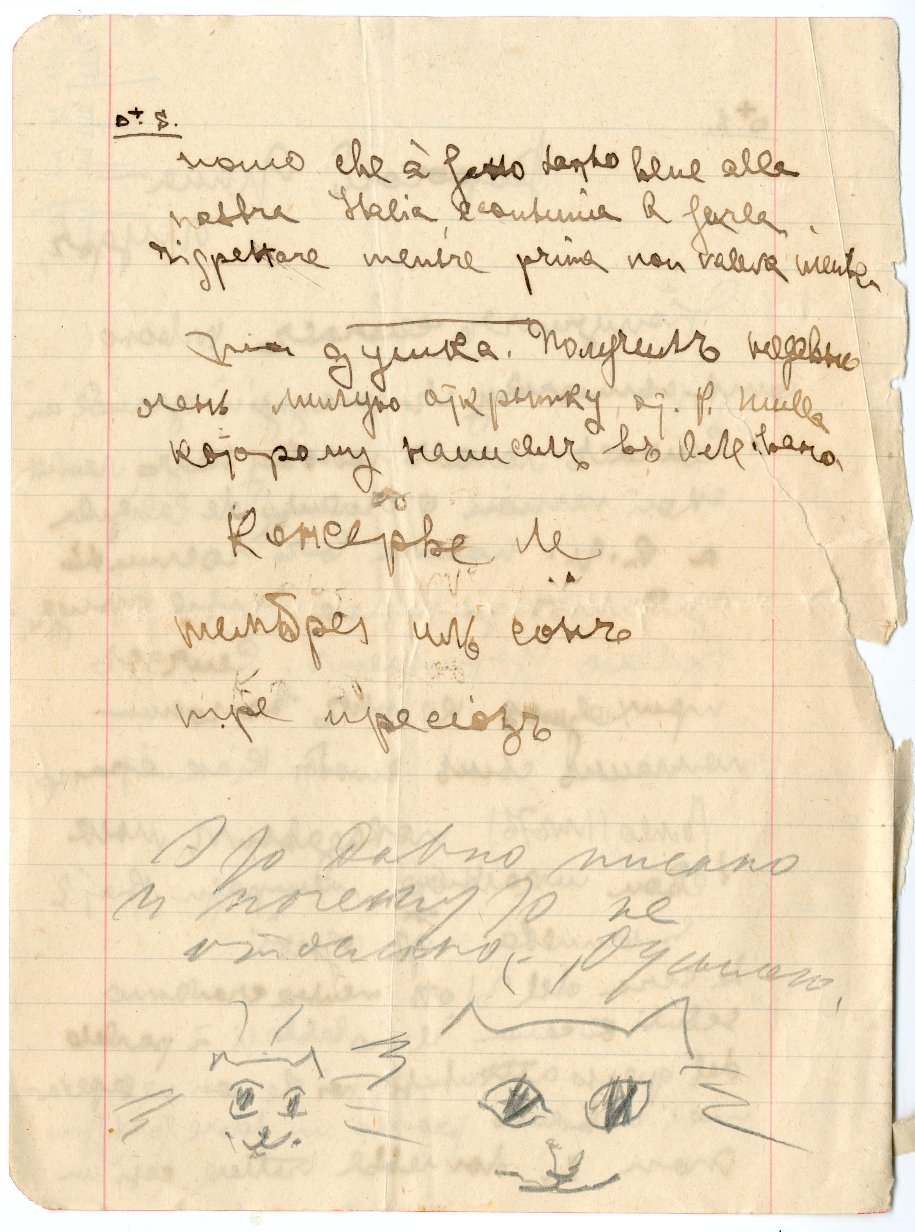 nomo che à fatto tanto bene alla
nostra Italia, e continua a farla
rispettare mentre prima non valeva niente.
душка. Получилъ недавно
очень милую открытку от. P. Nilla
которому написалъ въ
Консерве ле
тембрез иль сонъ
тре пресіозъ
Это давно писано
и почему то не
отослано, Одумано,